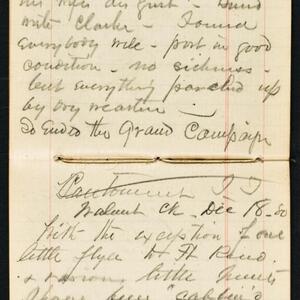 his
write Clarke - Found
everybody well - post in good
condition - no sickness -
but everything parched up
by dry weather.
So ends the Grand Campaign
Cantonment I T
Walnut Ck. Dec 18. 80
With the exception of one
little flyer to Ft Reno
& various little hunts